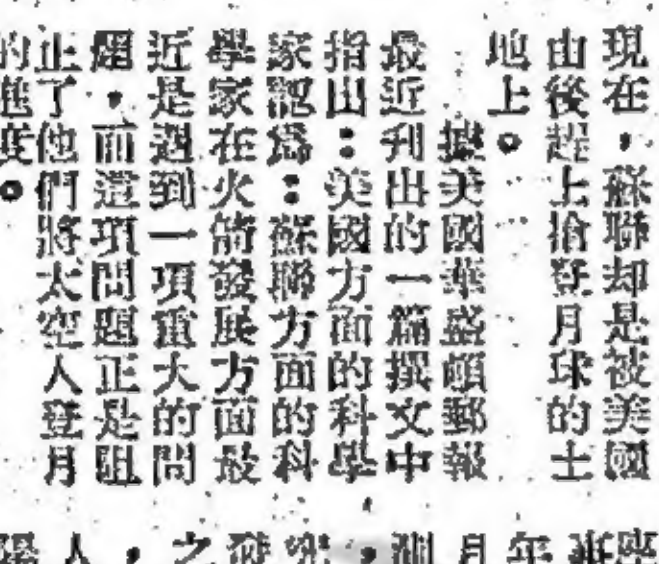 現在，蘇聯却是被美國
由後趕上搶登月球的土
地上。
據美國華盛頓郵報
最近刋出的一篇撰文中
指出：美國方面的科學
家認爲：蘇聯方面的科
學家在火箭發展方面最
近是遇到一項重大的問
題，而這項問題正是阻
止了他們將太空人登月
的進度。